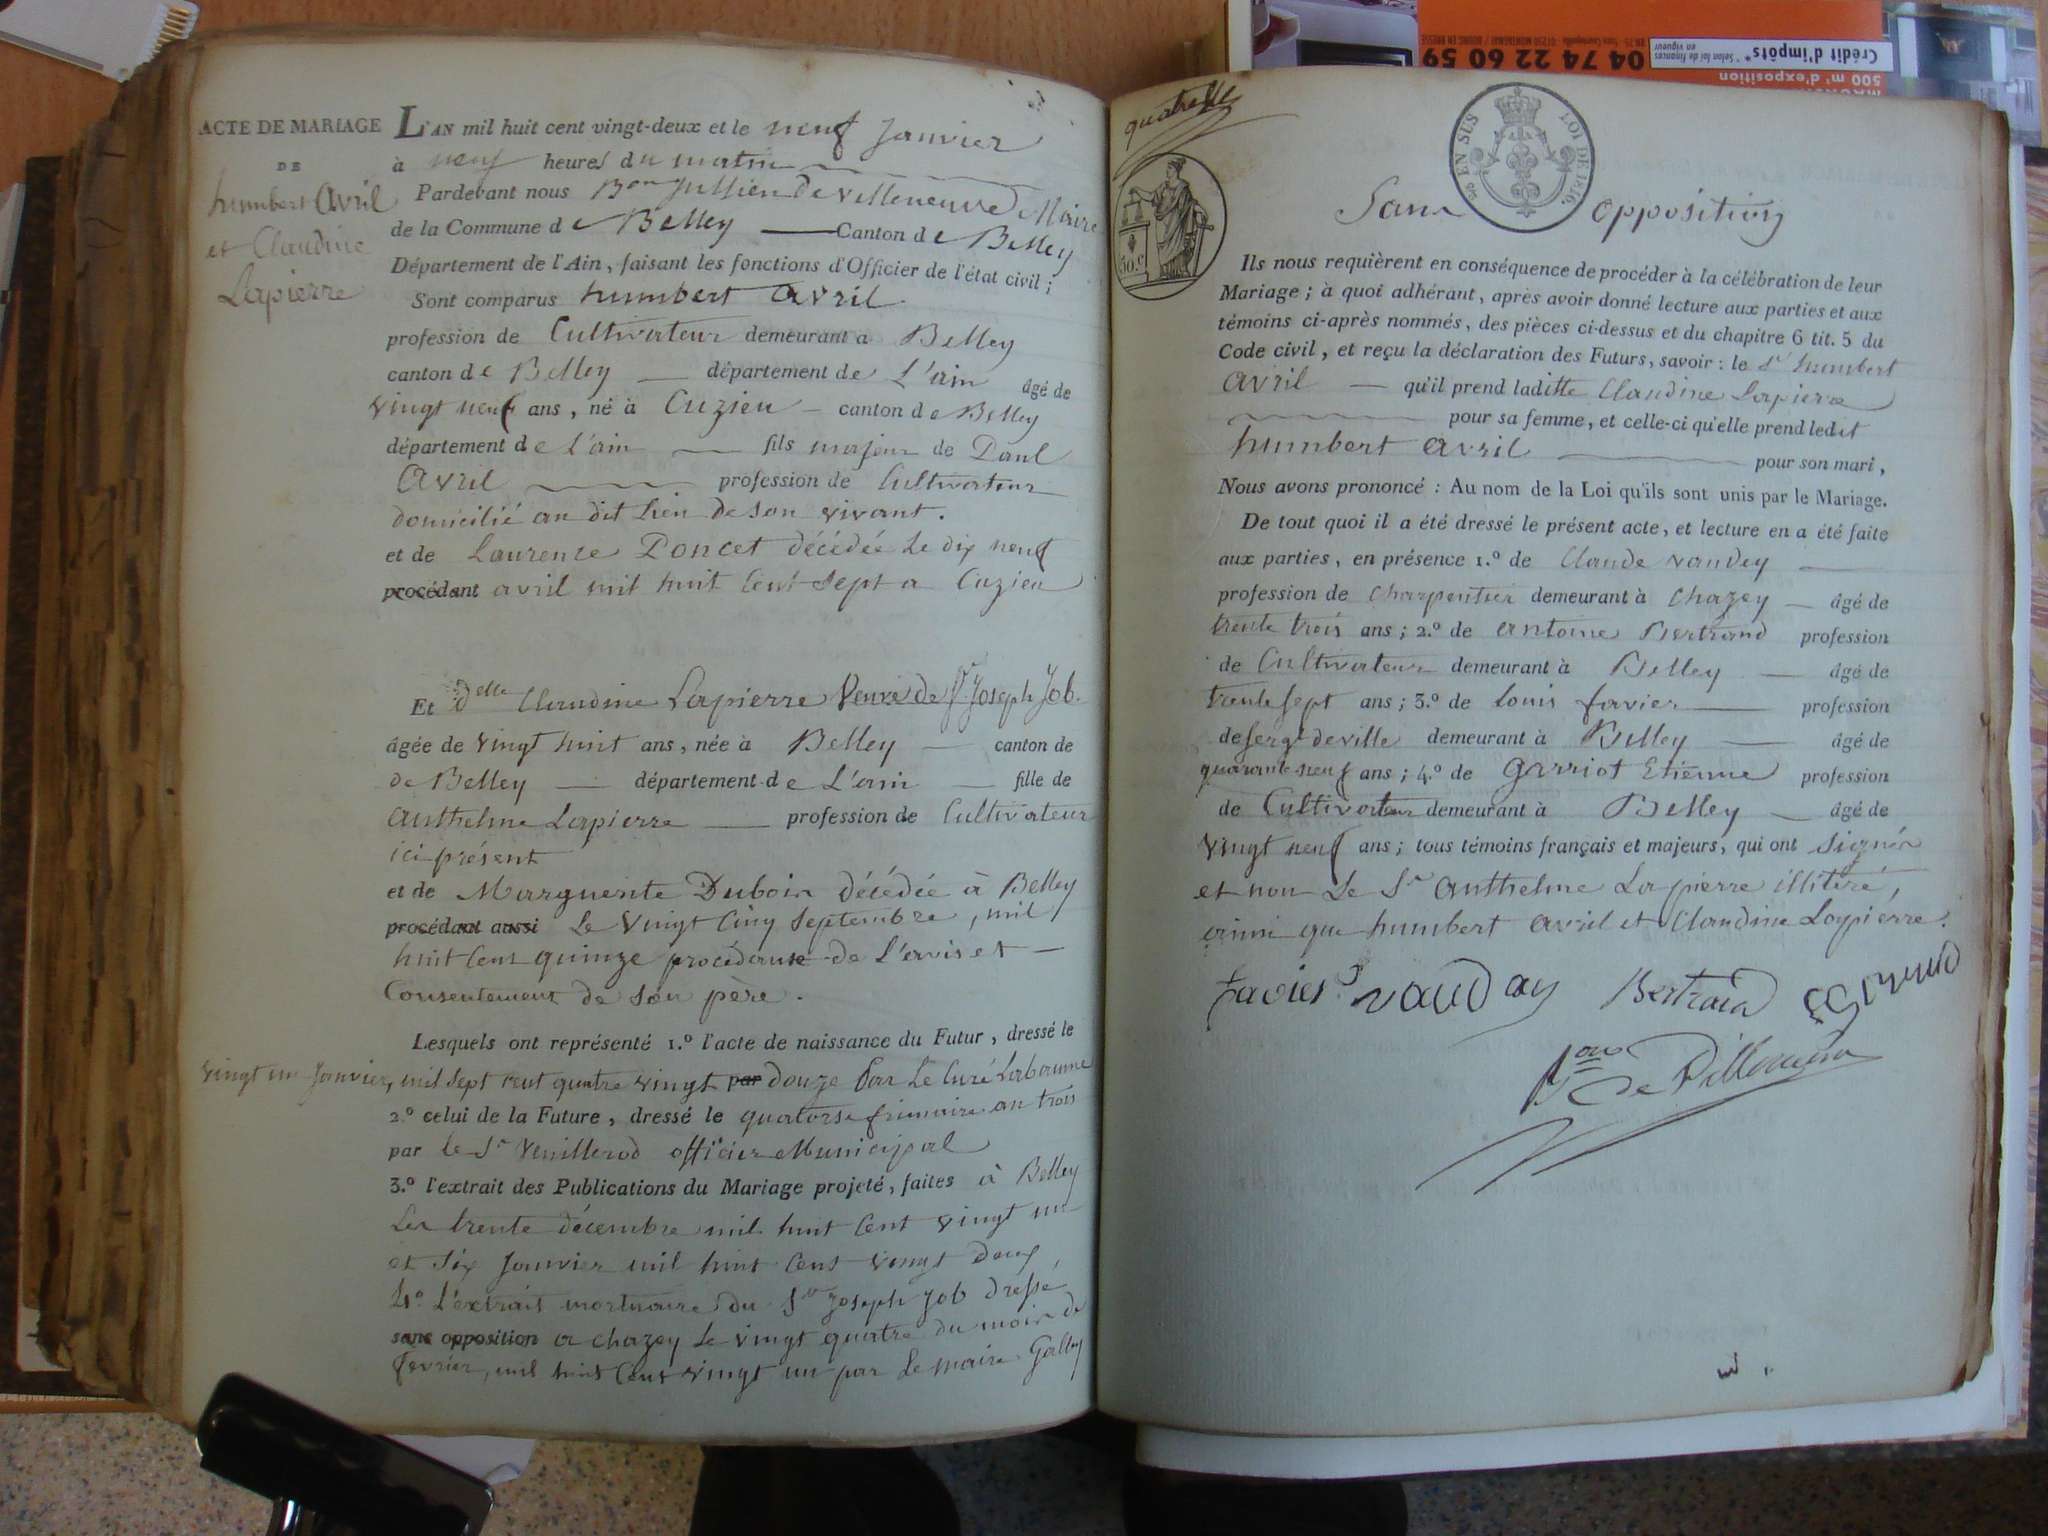 ACTE DE MARIAGE
DE
humbert Avril
et Claudine
Lapierre
L'AN mil huit cent vingt-deux et le neuf Janvier
à neuf heures du matin
Pardevant nous Bon Jullien de Villeneuve Maire
de la Commune de Belley Canton de Belley
Département de l'Ain, faisant les fonctions d'Officier de l'état civil ;
Sont comparus humbert avril
profession de Cultivateur demeurant a Belley
canton de Belley département de L'ain âgé de
vingt neuf ans, né à Cuzieu canton de Belley
département de L'ain fils majeur de Paul
Avril profession de Cultivateur
domicilié au dit Lieu de son vivant.
et de Laurence Poncet décédée le dix neuf
procédant avril mil huit Cent Sept a Cuzieu
Et delle Claudine Lapierre Veuve de Sr Joseph Job.
âgée de vingt huit ans, née à Belley canton de
de Belley département de L'ain fille de
Anthelme Lapierre profession de Cultivateur
ici présent
et de Marguerite Dubois décédée à Belley
procédant aussi le vingt Cinq Septembre, mil
huit Cent quinze procédant de L'avis et
Consentement de Son père.
Lesquels ont représenté 1.º l'acte de naissance du Futur, dressé le
vingt un Janvier, mil sept cent quatre vingt par douze Par Le Curé Labaume
2.º celui de la Future, dressé le quatorse frimaire an trois
par le Sr Veuillerod officier Municipal
3.º l'extrait des Publications du Mariage projeté, faites à Belley
Les trente décembre mil huit Cent vingt un
et Six Janvier mil huit Cent vingt deux
4º L'extrait mortuaire du Sr Joseph Job Dressé
sans opposition a chazey Le vingt quatre du mois de
fevrier, mil huit Cent vingt un par Le maire Gallay
quatre
EN SUS
LOI DE 1816.
50.c
Sans opposition
Ils nous requièrent en conséquence de procéder à la célébration de leur
Mariage ; à quoi adhérant, après avoir donné lecture aux parties et aux
témoins ci-après nommés, des pièces ci-dessus et du chapitre 6 tit. 5 du
Code civil, et reçu la déclaration des Futurs, savoir : le Sr humbert
Avril qu'il prend laditte Claudine Lapierre
pour sa femme, et celle-ci qu'elle prend ledit
humbert avril pour son mari,
Nous avons prononcé : Au nom de la Loi qu'ils sont unis par le Mariage.
De tout quoi il a été dressé le présent acte, et lecture en a été faite
aux parties, en présence 1.º de Claude vaudey
profession de Charpentier demeurant à Chazey âgé de
trente trois ans ; 2.º de antoine Bertrand profession
de Cultivateur demeurant à Belley âgé de
trente sept ans ; 3.º de Louis favier profession
de sergt de ville demeurant à Belley âgé de
quarante neuf ans ; 4.º de Garriot Etienne profession
de Cultivateur demeurant à Belley âgé de
vingt neuf ans ; tous témoins français et majeurs, qui ont signés
et non Le Sr Anthelme Lapierre illitéré,
ainsi que humbert avril et Claudine Lapierre.
favier vauday Bertrand
Bon de Villeneuve
Crédit d'impôts*
* Selon loi de finances
en vigueur
04 74 22 60 59
500 m² d'exposition